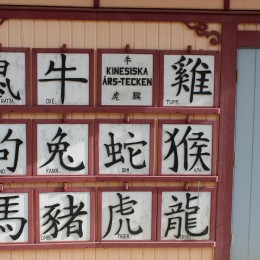 鼠 牛 雞
RATTA. OXE. TUPP.
牛
KINESISKA
ÅRS-TECKEN
虎
狗 兔 蛇 猴
KANIN. ORM. APA.
馬 豬 虎 龍
TIGER.